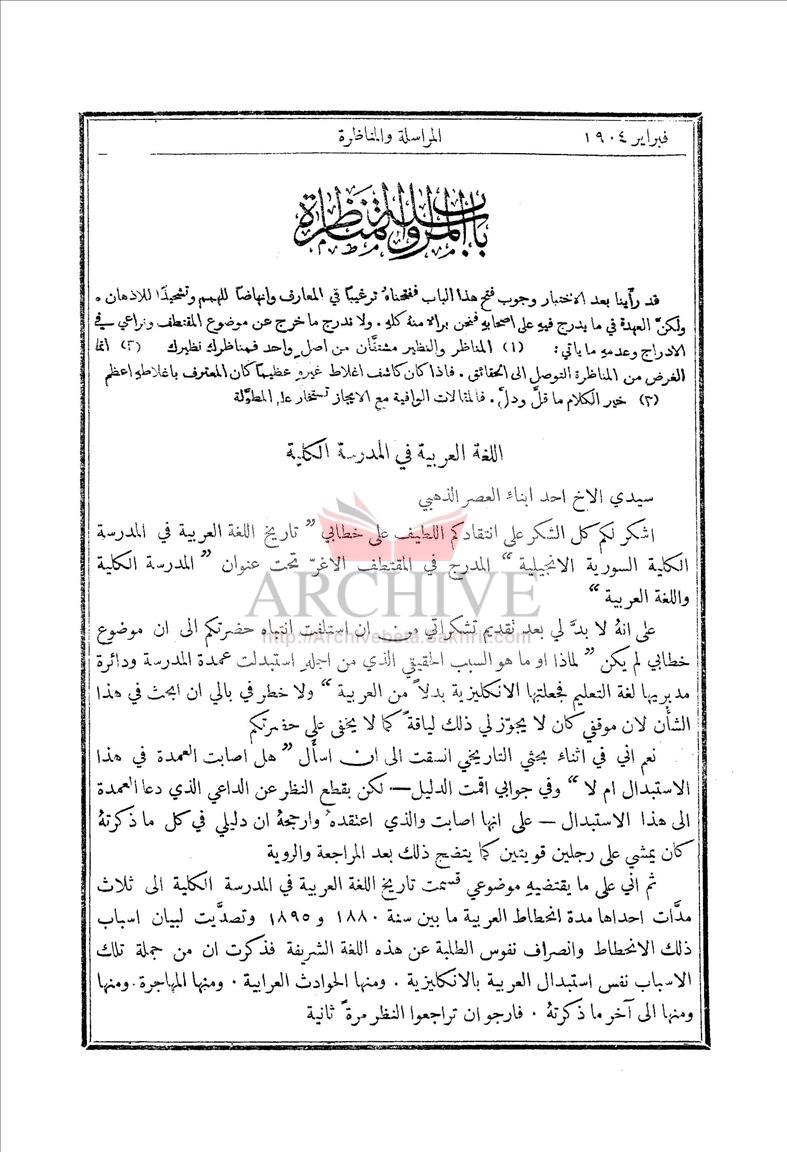 فبراير ١٩٠٤
المراسلة والمناظرة
باب المراسلة والمناظرة
قد رأينا بعد الاختبار وجوب فتح هذا الباب ففتحناهُ ترغيبًا في المعارف وانهاضًا للهمم وتشحيذًا للاذهان .
ولكنّ العهدة في ما يدرج فيهِ على اصحابهِ فنحن براء منهُ كلهِ . ولا ندرج ما خرج عن موضوع المقتطف ونراعي في
الادراج وعدمهِ ما ياتي : (١) المناظر والنظير مشتقَّان من اصل واحد فمناظرك نظيرك (٢) انما
الغرض من المناظرة التوصل الى الحقائق . فاذا كان كاشف اغلاط غيرهِ عظيمًا كان المعترف باغلاطهِ اعظم
(٣) خير الكلام ما قلَّ ودلَّ . فالمقالات الوافية مع الايجاز تستخار على المطوَّلة
اللغة العربية في المدرسة الكلية
سيدي الاخ احد ابناء العصر الذهبي
اشكر لكم كل الشكر على انتقادكم اللطيف على خطابي " تاريخ اللغة العربية في المدرسة
الكلية السورية الانجيلية " المدرج في المقتطف الاغرّ تحت عنوان " المدرسة الكلية
واللغة العربية "
على انهُ لا بدَّ لي بعد تقديم تشكراتي من ان استلفت انتباه حضرتكم الى ان موضوع
خطابي لم يكن " لماذا او ما هو السبب الحقيقي الذي من اجلهِ استبدلت عمدة المدرسة ودائرة
مديريها لغة التعليم فجعلتها الانكليزية بدلاً من العربية " ولا خطر في بالي ان ابحث في هذا
الشأن لان موقفي كان لا يجوّز لي ذلك لياقةً كما لا يخفى على حضرتكم
نعم اني في اثناء بحثي التاريخي انسقت الى ان اسأل " هل اصابت العمدة في هذا
الاستبدال ام لا " وفي جوابي اقمت الدليل — لكن بقطع النظر عن الداعي الذي دعا العمدة
الى هذا الاستبدال — على انها اصابت والذي اعتقدهُ وارجحهُ ان دليلي في كل ما ذكرتهُ
كان يمشي على رجلين قويتين كما يتضح ذلك بعد المراجعة والروية
ثم اني على ما يقتضيهِ موضوعي قسمت تاريخ اللغة العربية في المدرسة الكلية الى ثلاث
مدَّات احداها مدة انحطاط العربية ما بين سنة ١٨٨٠ و ١٨٩٥ وتصدَّيت لبيان اسباب
ذلك الانحطاط وانصراف نفوس الطلبة عن هذه اللغة الشريفة فذكرت ان من جملة تلك
الاسباب نفس استبدال العربية بالانكليزية . ومنها الحوادث العرابية . ومنها المهاجرة . ومنها
ومنها الى آخر ما ذكرتهُ . فارجو ان تراجعوا النظر مرةً ثانية
ARCHIVE
http://Archivebeta.Sakhrit.com